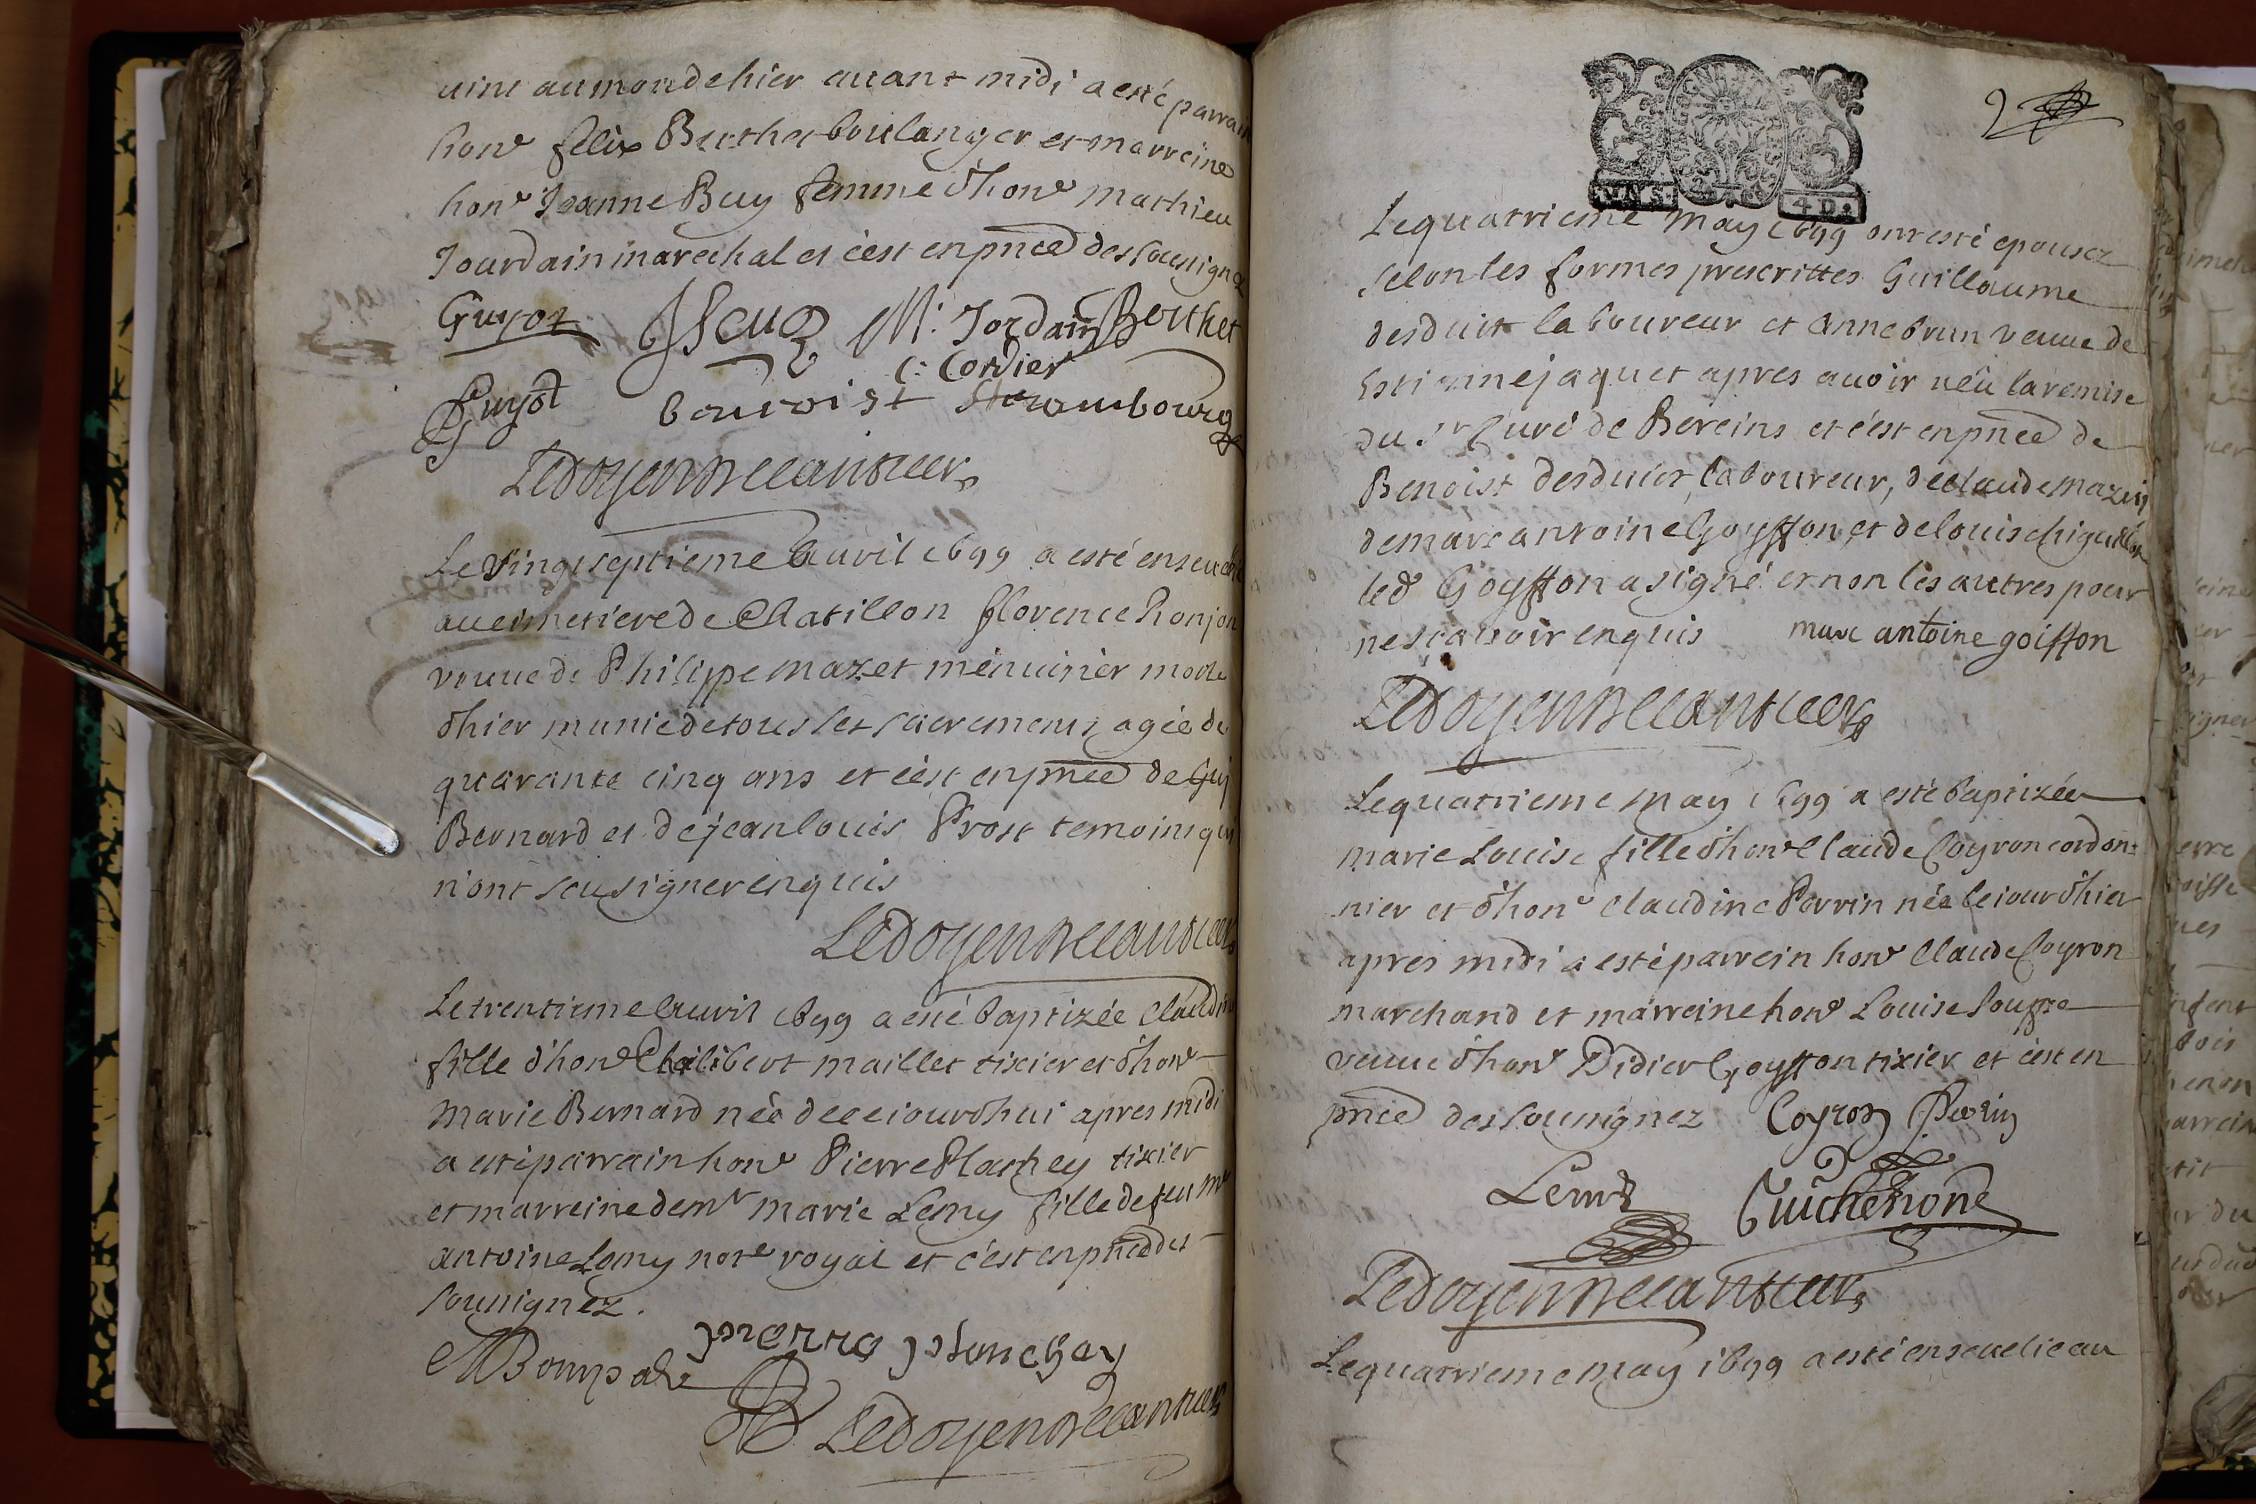 uint au monde hier auant midi a esté parrain
hon^e felix Buthet boulanger et marreine
hon^e Jeanne Buy femme d'hon^e mathieu
Jourdain marechal et c'est en pñce des sousignez
Guyot M. Jordain Berthet
C. Cordier
Guyot benoist
Ledoyen
Le vingtseptieme auril 1699 a esté enseuelie
au cimetiere de Chatillon florence Ronjon
veuue de Philippe mazet menuisier morte
d'hier munie de tous les sacrements agée de
quarante cinq ans et c'est en pñce de Guy
Bernard et de jean louis Prost temoins qui
n'ont sceu signer enquis
Ledoyen
Le trentieme auril 1699 a esté baptizée Claudine
fille d'hon^e Philibert maillet tixier et d'hon^e
Marie Bernard née de ceiourd'hui apres midi
a esté parrain hon^e Pierre Planchey tixier
et marreine dem^e marie Lemy fille de feu M^e
antoine Lemy not^e royal et c'est en pñce des
sousignez.
pierre planchey
Ledoyen
2
4 D
Le quatrieme may 1699 ont esté epousez
selon les formes prescrittes Guillaume
desduit laboureur et anne brun veuue de
Estienne jaquet apres auoir ueü la remise
du S^r Curé de Bereins et c'est en pñce de
Benoist desduict, laboureur, de claude mazuy
de marc antoine Goyffon et de louis chiguillon
led Goyffon a signé et non les autres pour
ne scauoir enquis marc antoine goiffon
Ledoyen
Le quatrieme may 1699 a esté baptizée
marie Louise fille d'hon^e Claude Coyron cordon:
nier et d'hon^e claudine Perrin née le iour d'hier
apres midi a esté parrein hon^e Claude Coyron
marchand et marreine hon^e Louise
veuue d'hon^e Didier Goyffon tixier et c'est en
pñce des sousignez Coyron Perrin
Guichenon
Ledoyen
Le quatrieme may 1699 a esté enseuelie au